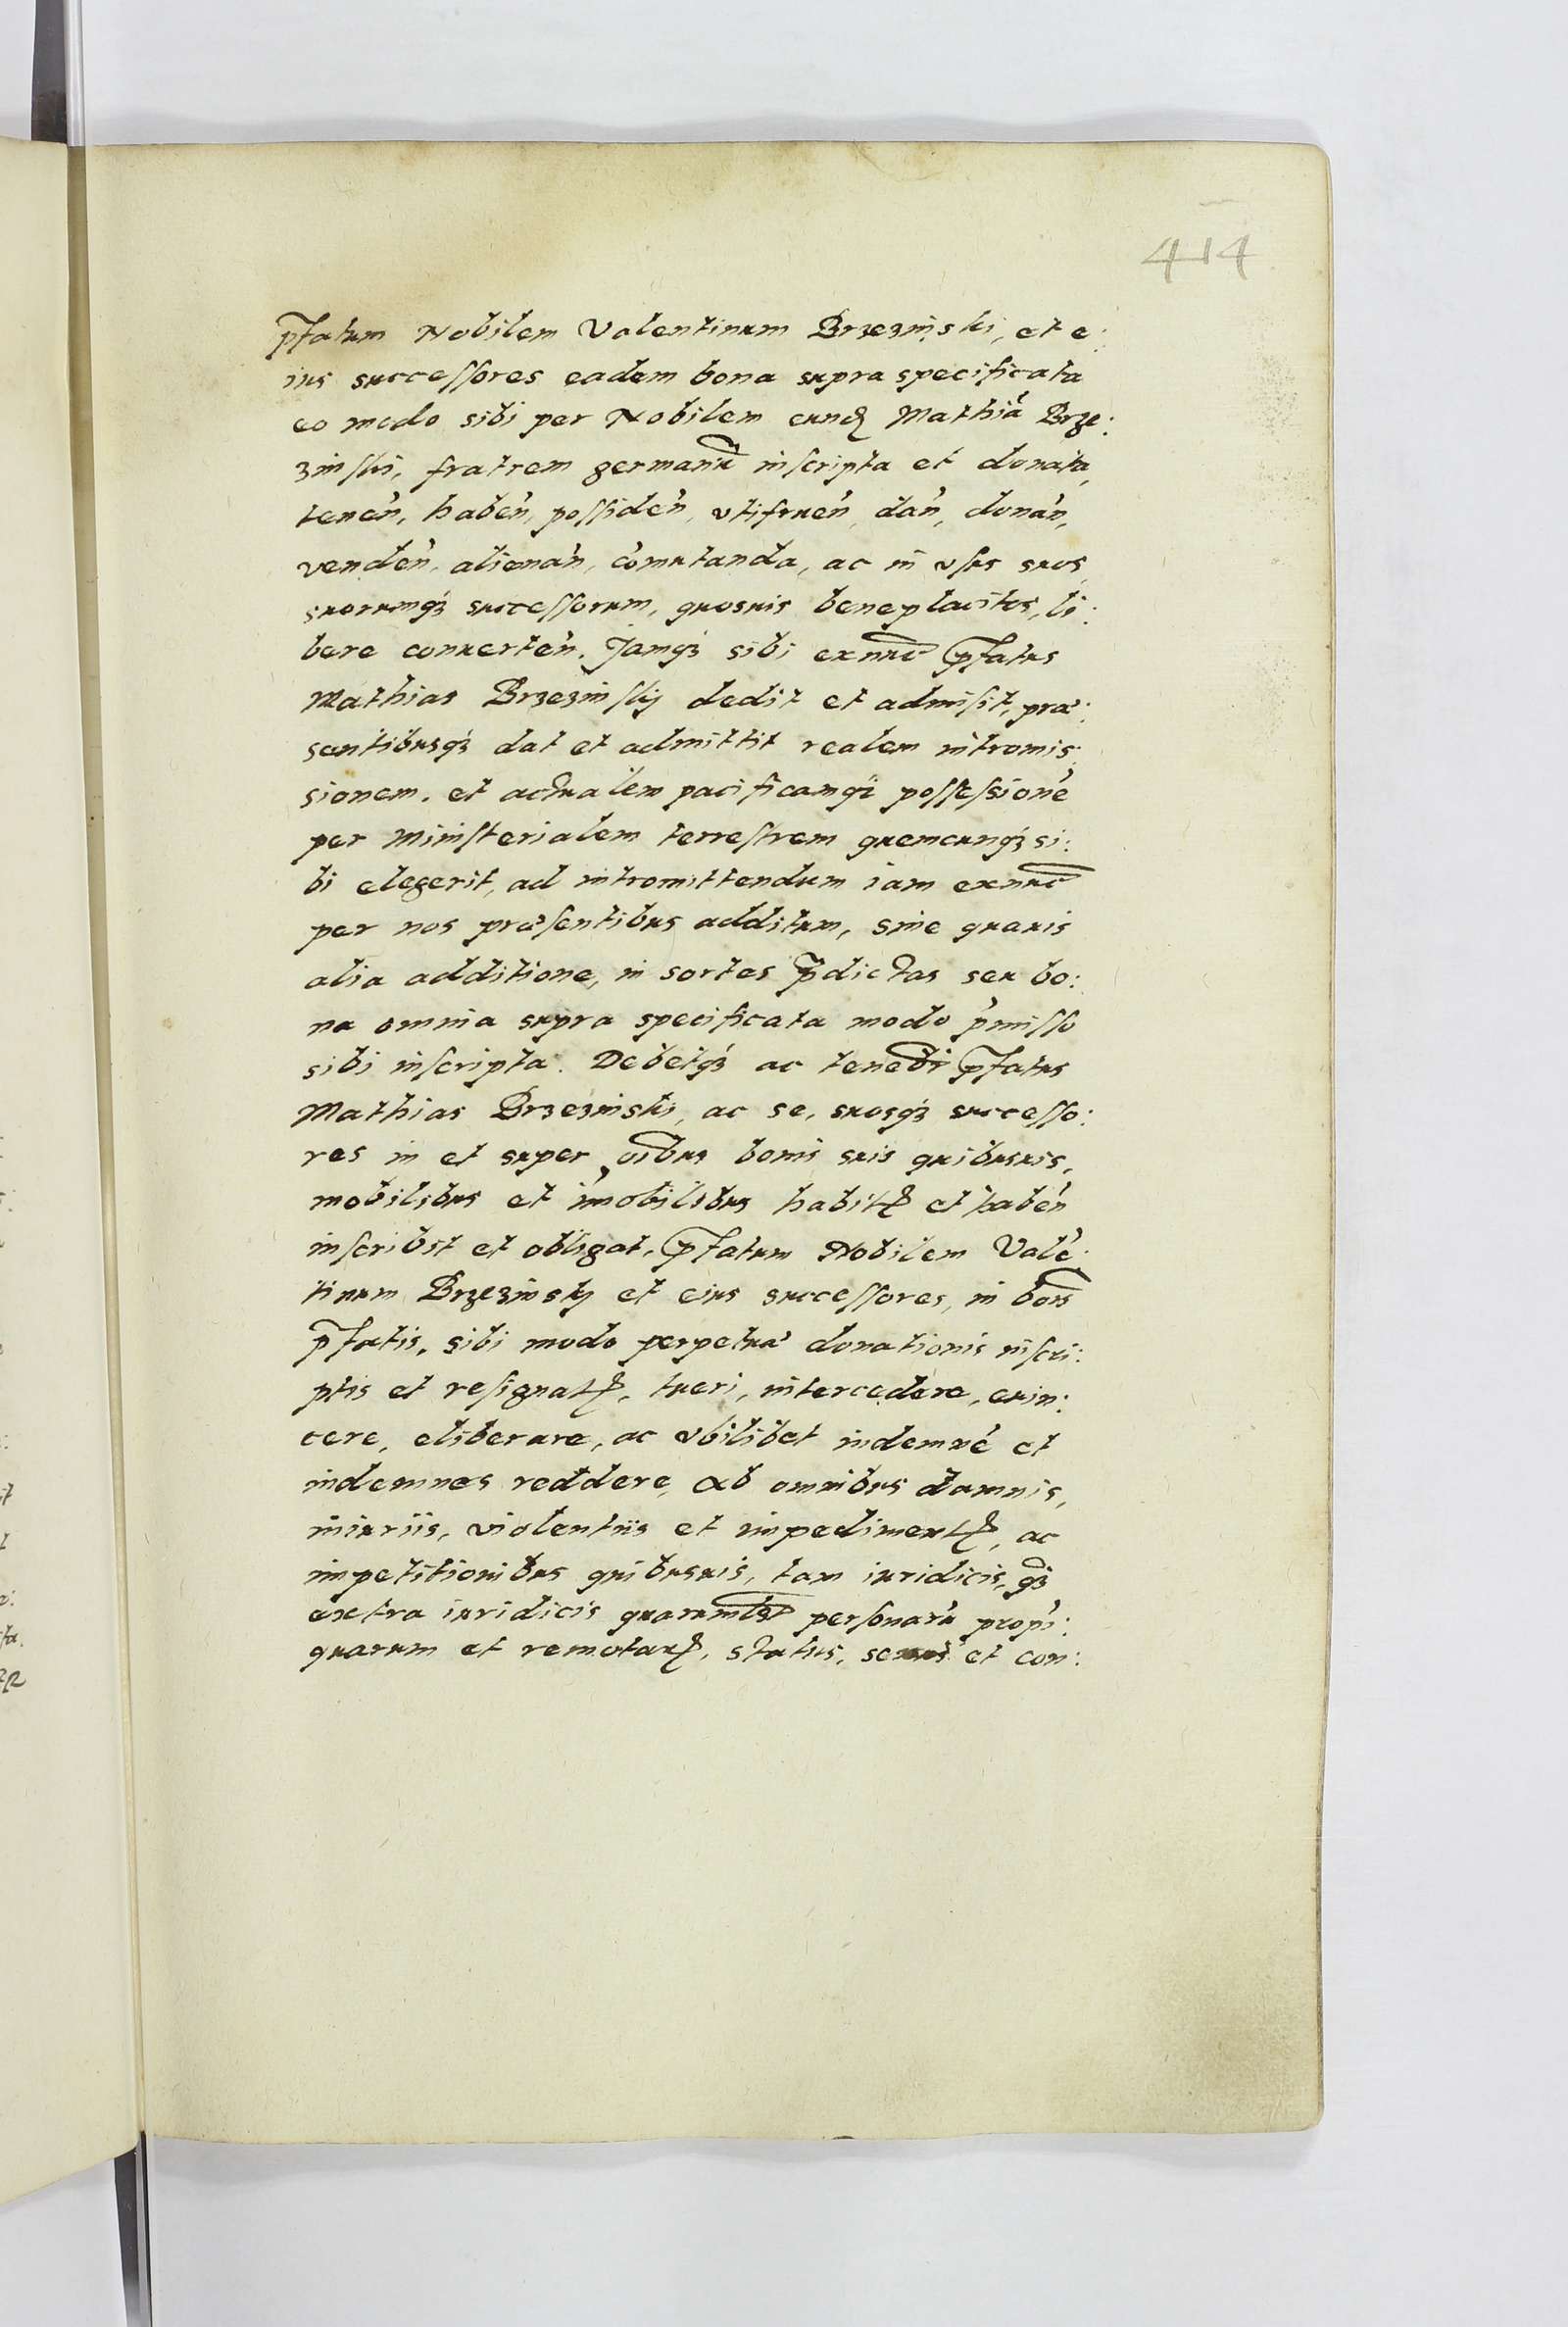 414
pfatum Nobilem Valentinum Brzezinski, et e:
ius successores eadem bona supra specificata
eo modo sibi per Nobilem eund Mathiā Brze:
zinski, fratrem germanū inscripta et donata,
tenēn, habēn, possidēn, vtifruēn, dān, donān,
vendēn, alienān, cōmutanda, ac in vsus suos,
suorumq3 successorum, quosuis beneplacitos, li:
bere conuertēn. Jamq3 sibi exnūc pfatus
Mathias Brzezinskij dedit et admisit, præ:
sentibusq3 dat et admittit realem intromis:
sionem. et actualem pacificamq3 possessionē
per Ministerialem terrestrem quemcunq3 si:
bi elegerit, ad intromittendum iam exnūc
per nos præsentibus additum, sine quauis
alia additione, in sortes p̄dictas seu bo:
na omnia supra specificata modo p̄misso
sibi inscripta. Debetq3 ac tenebr̄ pfatus
Mathias Brzezinski, ac se, suosq3 successo:
res in et super oībus bonis suis quibusuis,
mobilibus et īmobilibus habitꝭ et habēn
inscribit et obligat, pfatum Nobilem Valē:
tinum Brzezinskij et eius successores, in boīs
p̄fatis, sibi modo perpetuæ donationis inscri:
ptis et resignatꝭ, tueri, intercedere, euin:
cere, eliberare, ac vbilibet indemnē et
indemnes reddere, ab omnibus damnis,
iniuriis, violentiis et impedimentꝭ, ac
impetitionibus quibusuis, tam iuridicis, q̄3
extra iuridicis quarumlꝫt personarū propi:
quarum et remotarꝭ, status, sexus et con: